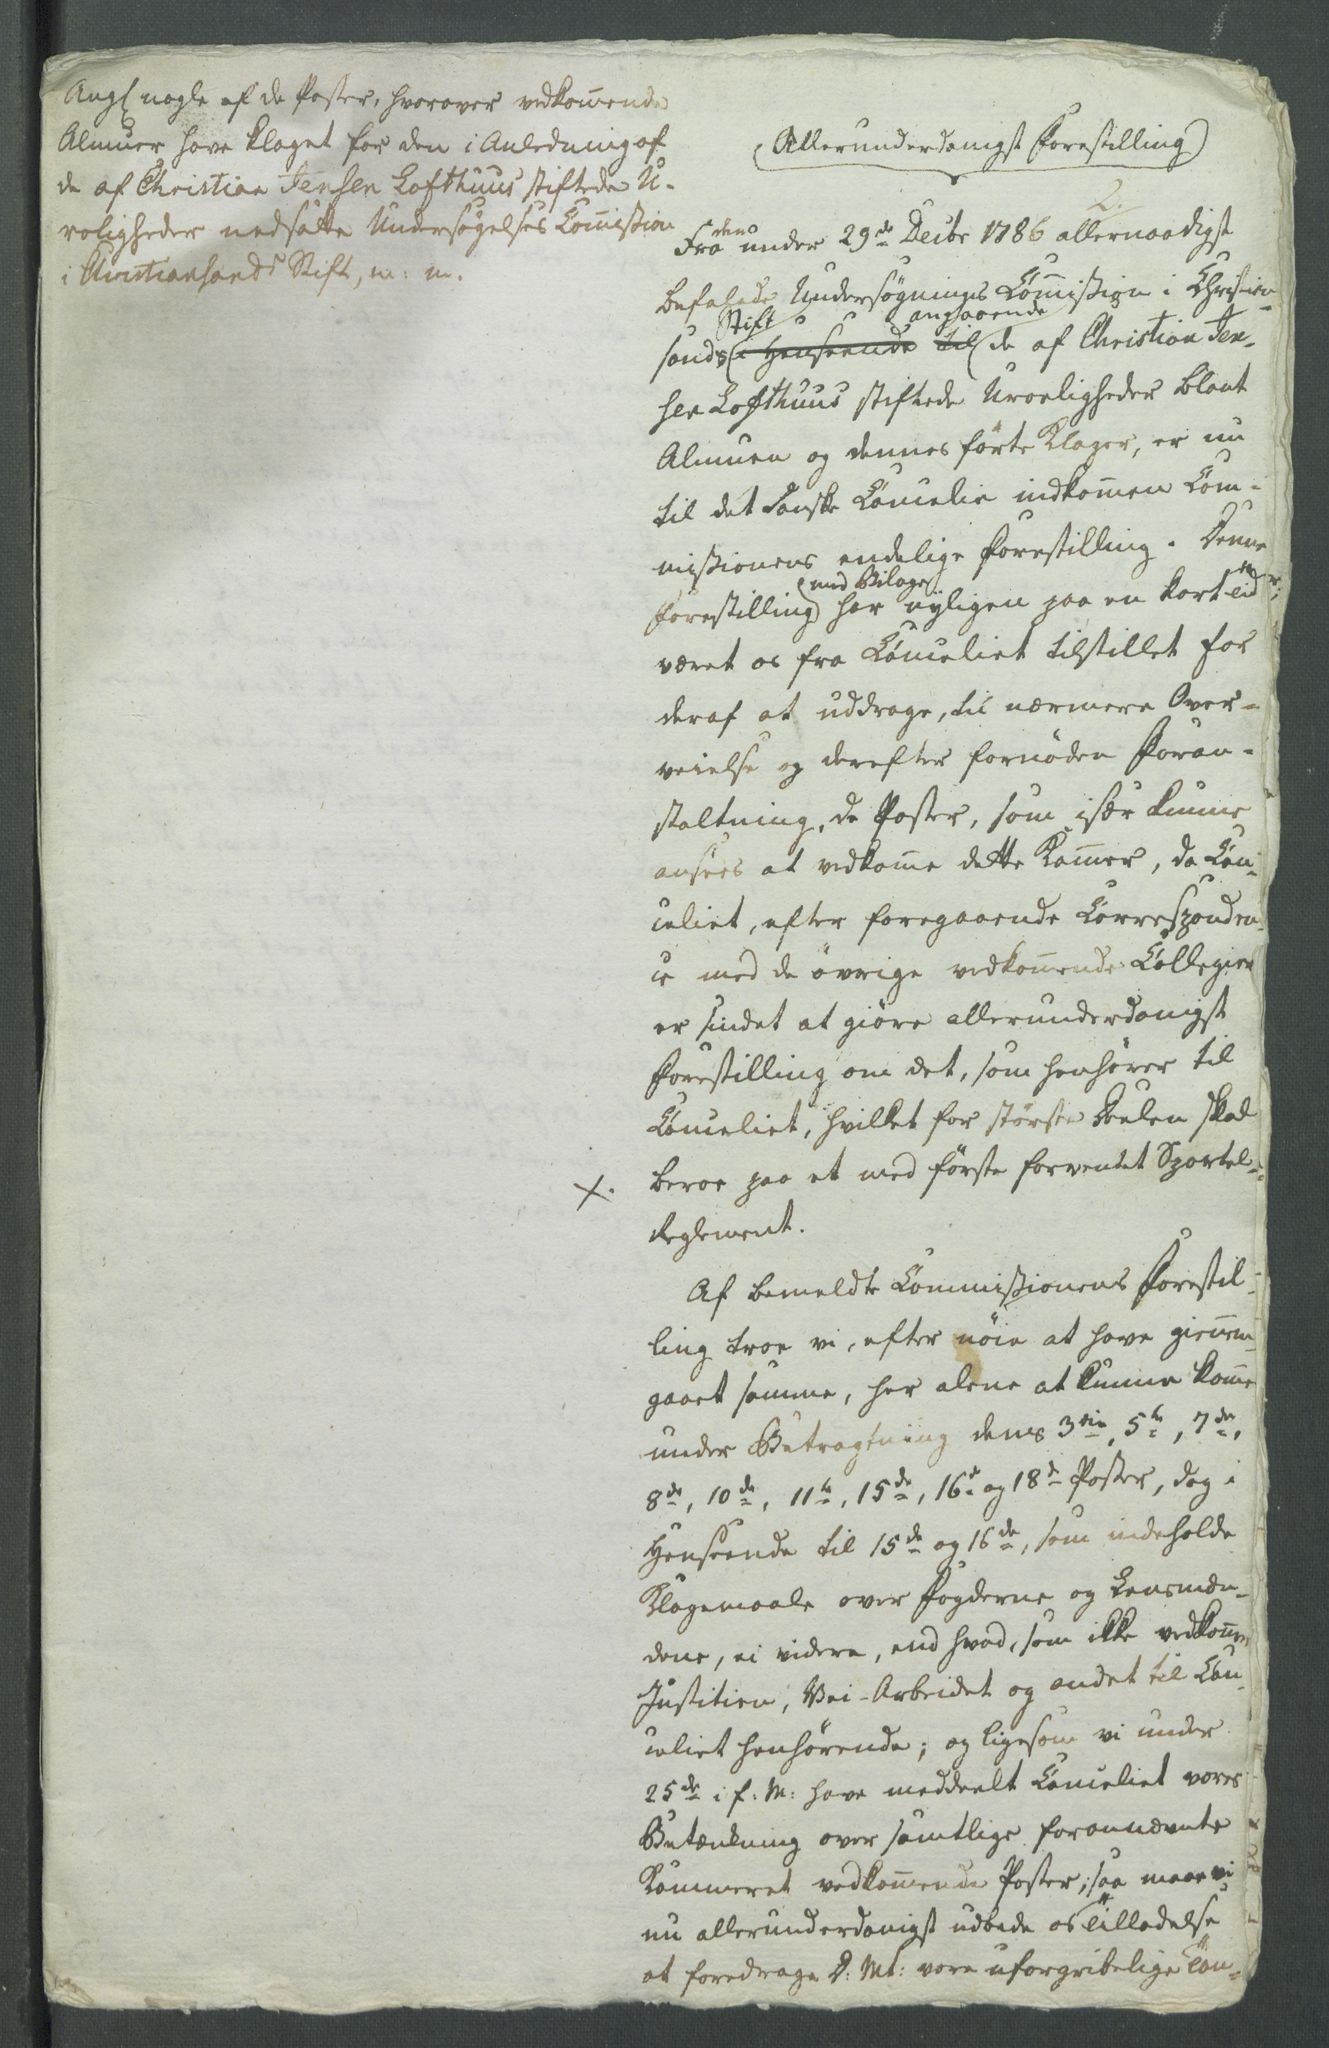 Angl nogle af de Poster, hvorover vedkommende
Almuer have klaget for den i Anledning af
de af Christian Jensen Lofthuus stiftede U-
roligheder nedsatte Undersögelses Commission
i Christiansands Stift, m: m.
Allerunderdanigst Forestilling
2.
Fra den under 29de Decbr 1786 allernaadigst
befalede Undersøgnings Commission i Christian-
sands Stift i Henseende til angaaende de af Christian Jen-
sen Lofthuus stiftede Uroeligheder blant
Almuen og dennes førte Klager, er nu
til det danske Cancelie indkommen Com-
missionens endelige Forestilling. Denne
Forestilling med Bilager har nyligen paa en kort Tid
været os fra Cancelliet tilstillet for
deraf at uddrage, til nærmere Over-
veielse og derefter fornöden Foran-
staltning, de Poster, som især kunne
ansees at vedkomme dette Kammer, da Can-
celiet, efter foregaaende Corresponden-
ce med de övrige vedkommende Collegier
er sindet at giöre allerunderdanigst
Forestilling om det, som henhörer til
Canceliet, hvilket for störste Deelen skal
X. beroe paa et med förste forventet Sportel-
Reglement.
Af bemeldte Commissionens Forestil-
ling troe vi, efter nöie at have giennem-
gaaet samme, her alene at kunne komme
under Betragtning dens 3die, 5te, 7de,
8de, 10de, 11te, 15de, 16de og 18de Poster, dog i
Henseende til 15de og 16de, som indeholde
Klagemaale over Fogderne og Lensmæn-
dene, ei videre, end hvad, som ikke vedkommer
Justitien, Vei-Arbeidet og andet til Can-
celiet henhörende; og ligesom vi under
25de i f: M: have meddeelt Canceliet vores
Betænkning over samtlige forannævnte
Kammeret vedkommende Poster; saa maae vi
nu allerunderdanigst udbede os Tilladelse
at foredrage D: Mt: vore uforgribelige Tan-